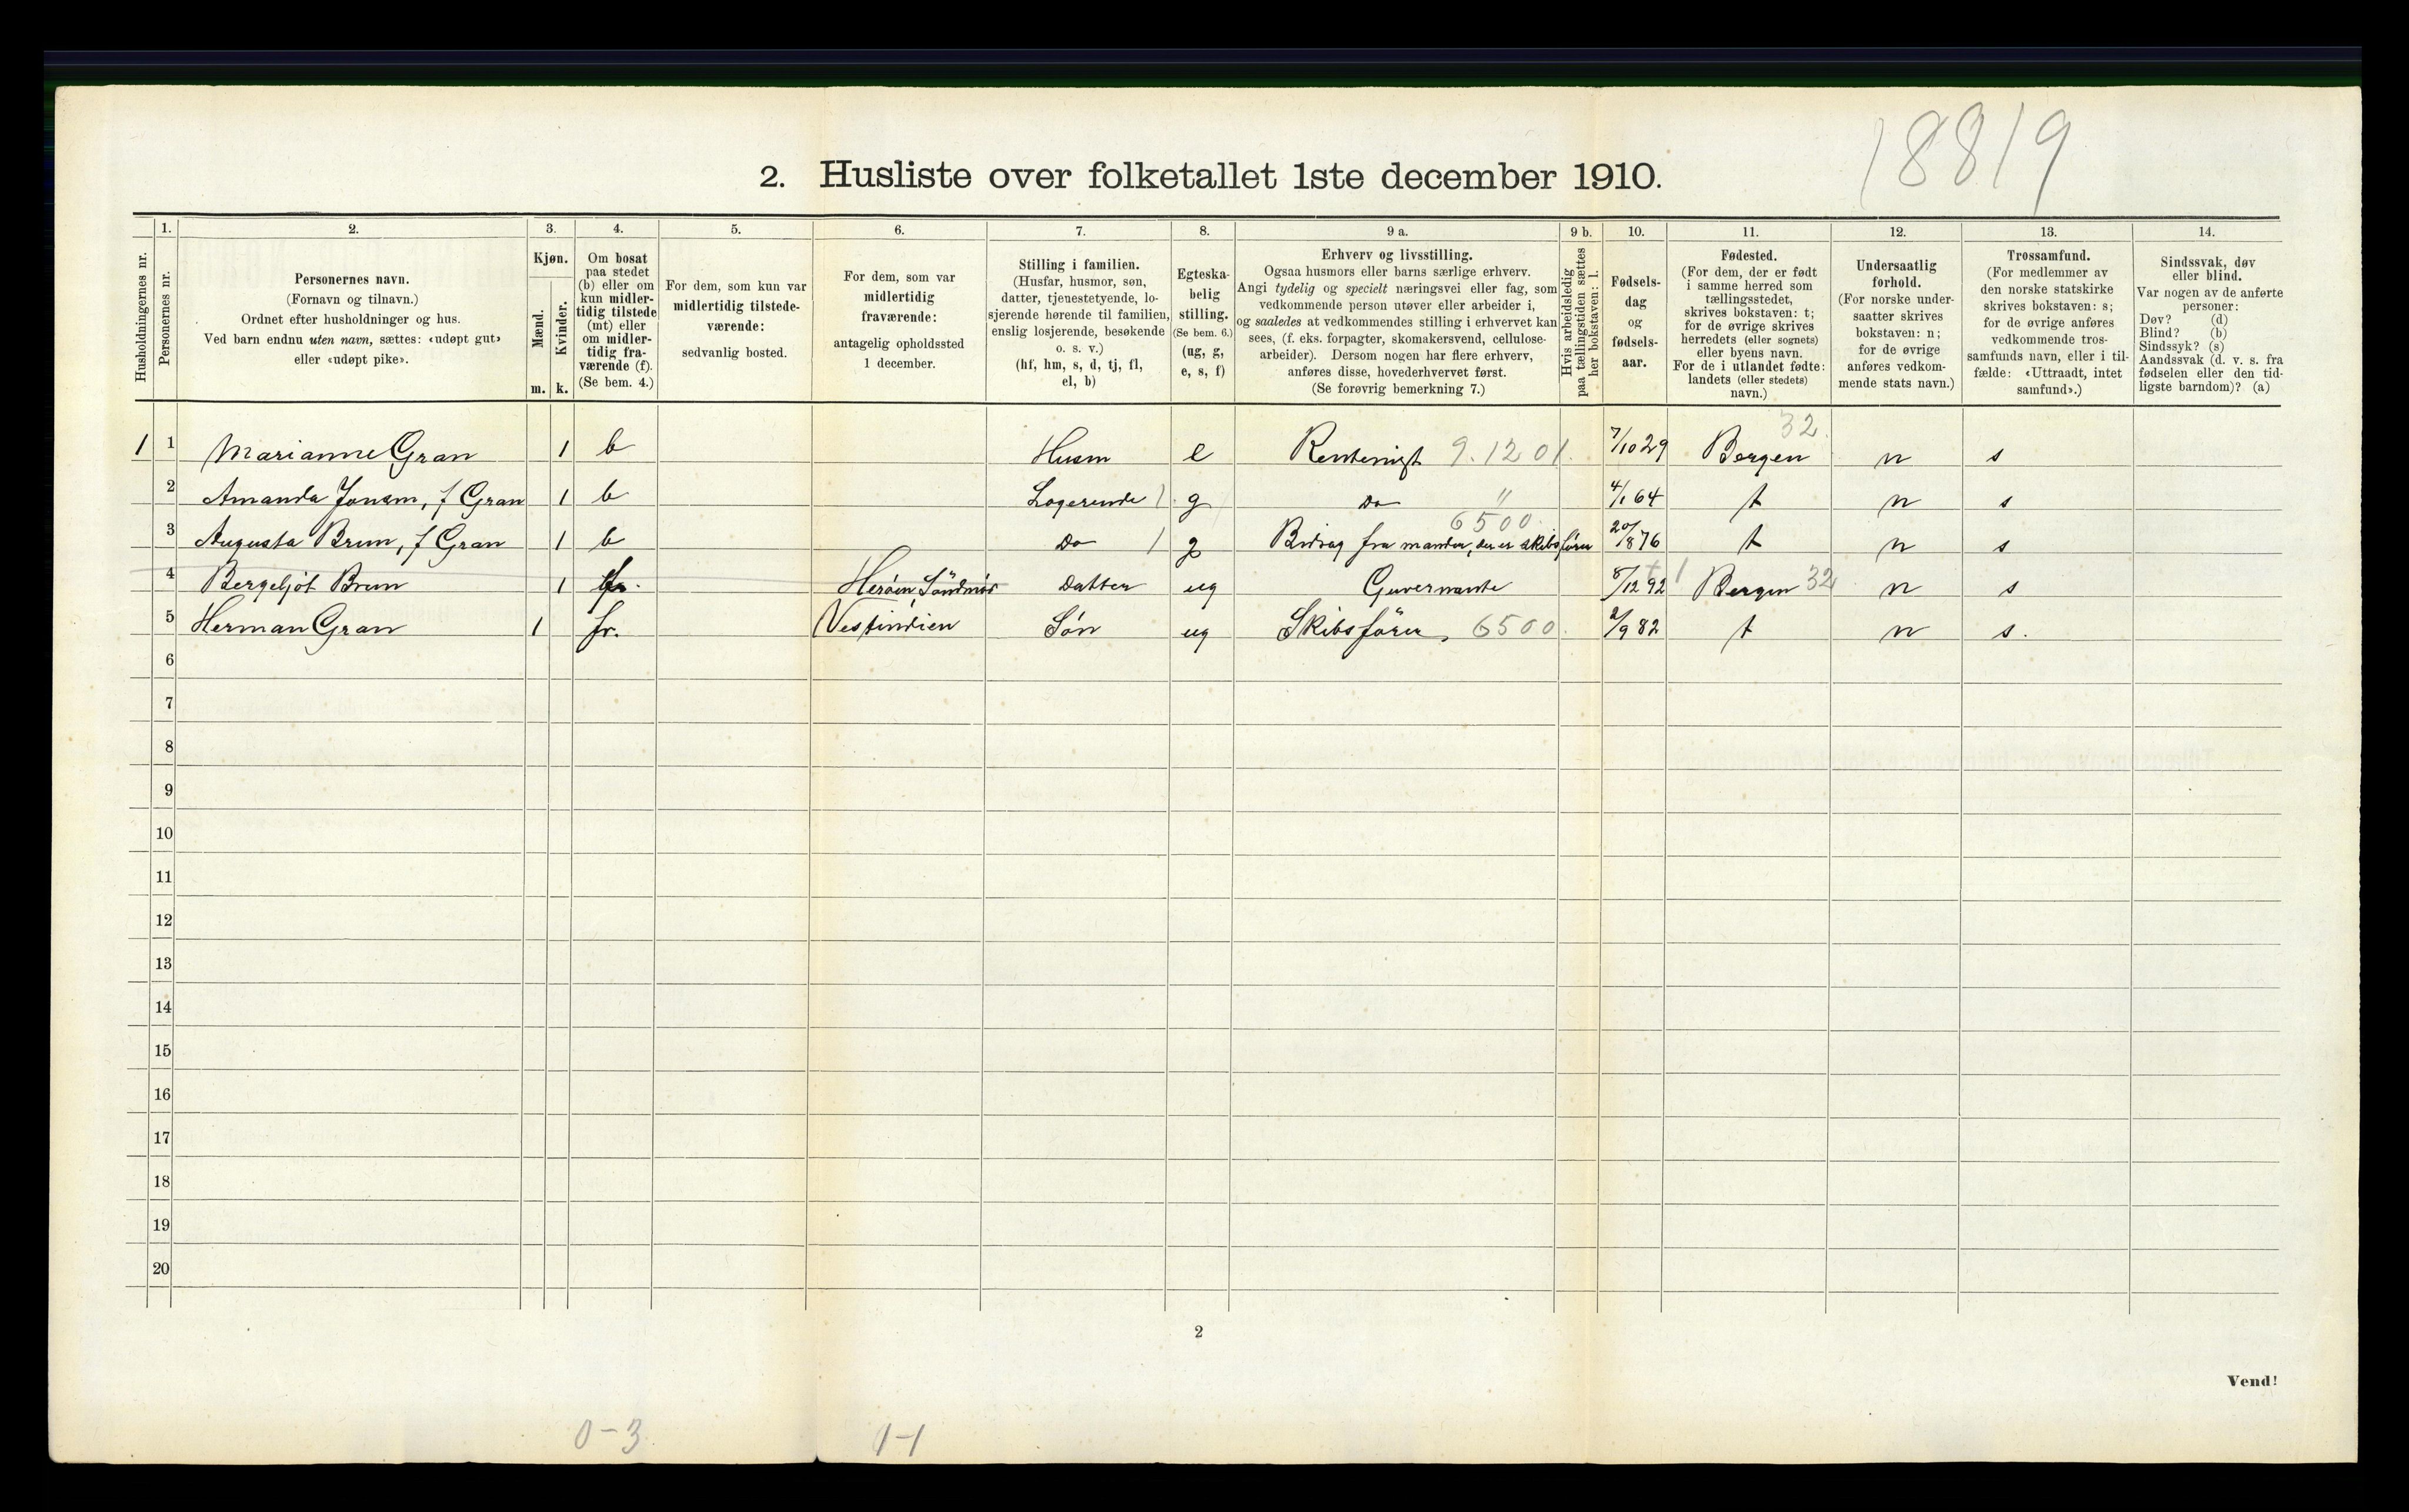 18819
2. Husliste over folketallet 1ste december 1910.
Husholdningernes nr.
1.
Personernes nr.
2.
Personernes navn.
(Fornavn og tilnavn.)
Ordnet efter husholdninger og hus.
Ved barn endnu uten navn, sættes: «udøpt gut»
eller «udøpt pike».
3.
Kjøn.
Mænd.
m.
Kvinder.
k.
4.
Om bosat
paa stedet
(b) eller om
kun midler-
tidig tilstede
(mt) eller
om midler-
tidig fra-
værende (f).
(Se bem. 4.)
5.
For dem, som kun var
midlertidig tilstede-
værende:
sedvanlig bosted.
6.
For dem, som var
midlertidig
fraværende:
antagelig opholdssted
1 december.
7.
Stilling i familien.
(Husfar, husmor, søn,
datter, tjenestetyende, lo-
sjerende hørende til familien,
enslig losjerende, besøkende
o. s. v.)
(hf, hm, s, d, tj, fl,
el, b)
8.
Egteska-
belig
stilling.
(Se bem. 6.)
(ug, g,
e, s, f)
9 a.
Erhverv og livsstilling.
Ogsaa husmors eller barns særlige erhverv.
Angi tydelig og specielt næringsvei eller fag, som
vedkommende person utøver eller arbeider i,
og saaledes at vedkommendes stilling i erhvervet kan
sees, (f. eks. forpagter, skomakersvend, cellulose-
arbeider). Dersom nogen har flere erhverv,
anføres disse, hovederhvervet først.
(Se forøvrig bemerkning 7.)
9 b.
Hvis arbeidsledig
paa tællingstiden sættes
her bokstaven: l.
10.
Fødsels-
dag
og
fødsels-
aar.
11.
Fødested.
(For dem, der er født
i samme herred som
tællingsstedet,
skrives bokstaven: t;
for de øvrige skrives
herredets (eller sognets)
eller byens navn.
For de i utlandet fødte:
landets (eller stedets)
navn.)
12.
Undersaatlig
forhold.
(For norske under-
saatter skrives
bokstaven: n;
for de øvrige
anføres vedkom-
mende stats navn.)
13.
Trossamfund.
(For medlemmer av
den norske statskirke
skrives bokstaven: s;
for de øvrige anføres
vedkommende tros-
samfunds navn, eller i til-
fælde: «Uttraadt, intet
samfund».)
14.
Sindssvak, døv
eller blind.
Var nogen av de anførte
personer:
Døv? (d)
Blind? (b)
Sindssyk? (s)
Aandssvak (d. v. s. fra
fødselen eller den tid-
ligste barndom)? (a)
1 1 Marianne Gran 1 b Husm e 9.12 01. 7/10 29 Bergen 32 n s
2 Amanda f Gran 1 b Logerende 1. g Do " 4/1 64 t n s
3 Augusta Brun, f Gran 1 b Do 1 g Bidrag fra manden, der er skibsfører 6500 20/8 76 t n s
4 Bergeljot Brun 1 fr. Herøen Søndmør Datter ug Guvernante 8/12 92 1 Bergen 32 n s
5 Herman Gran 1 fr. Vestindien Søn ug Skibsfører, 6500 2/9 82 t n s.
6
7
8
9
10
11
12
13
14
15
16
17
18
19
20
2
Vend!
0-3
1-1